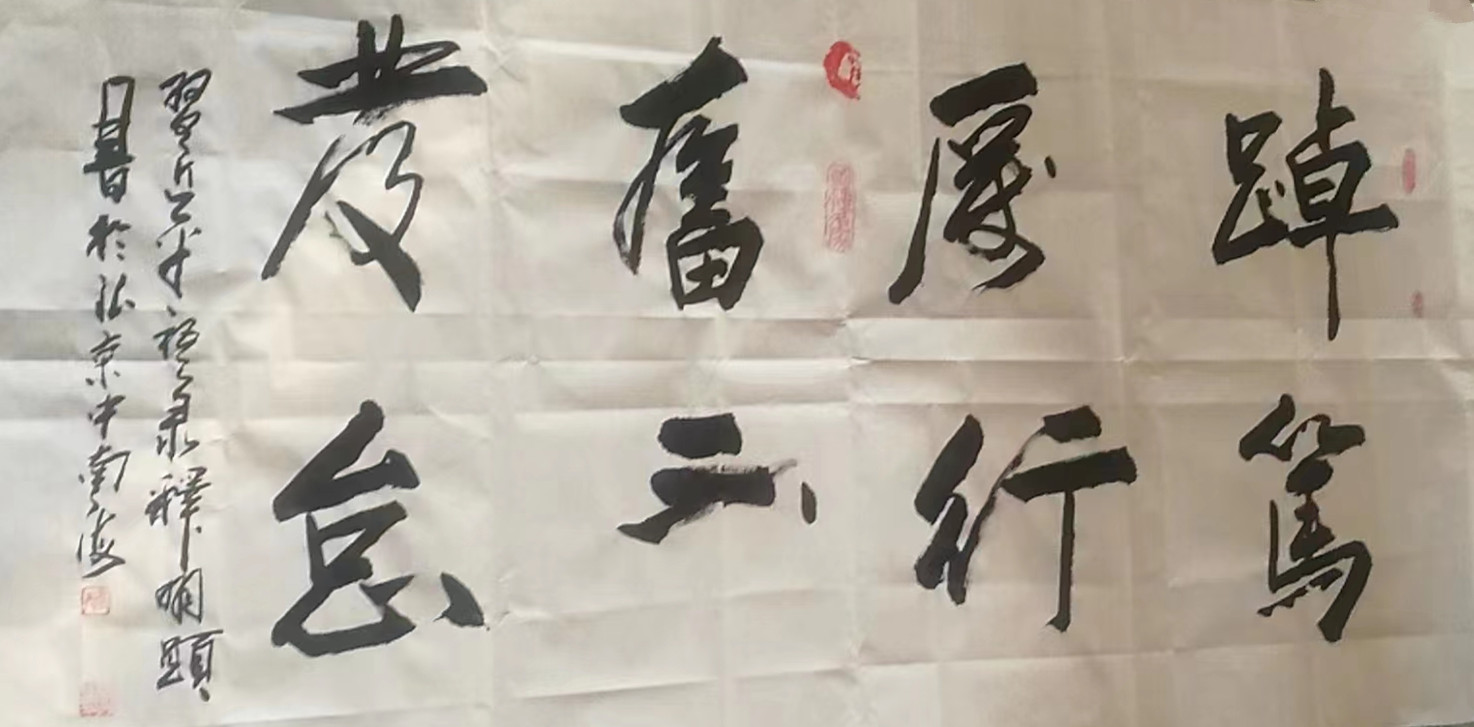 踔厲奮發
篤行不怠
習近平語录釋明
書於北京中南海